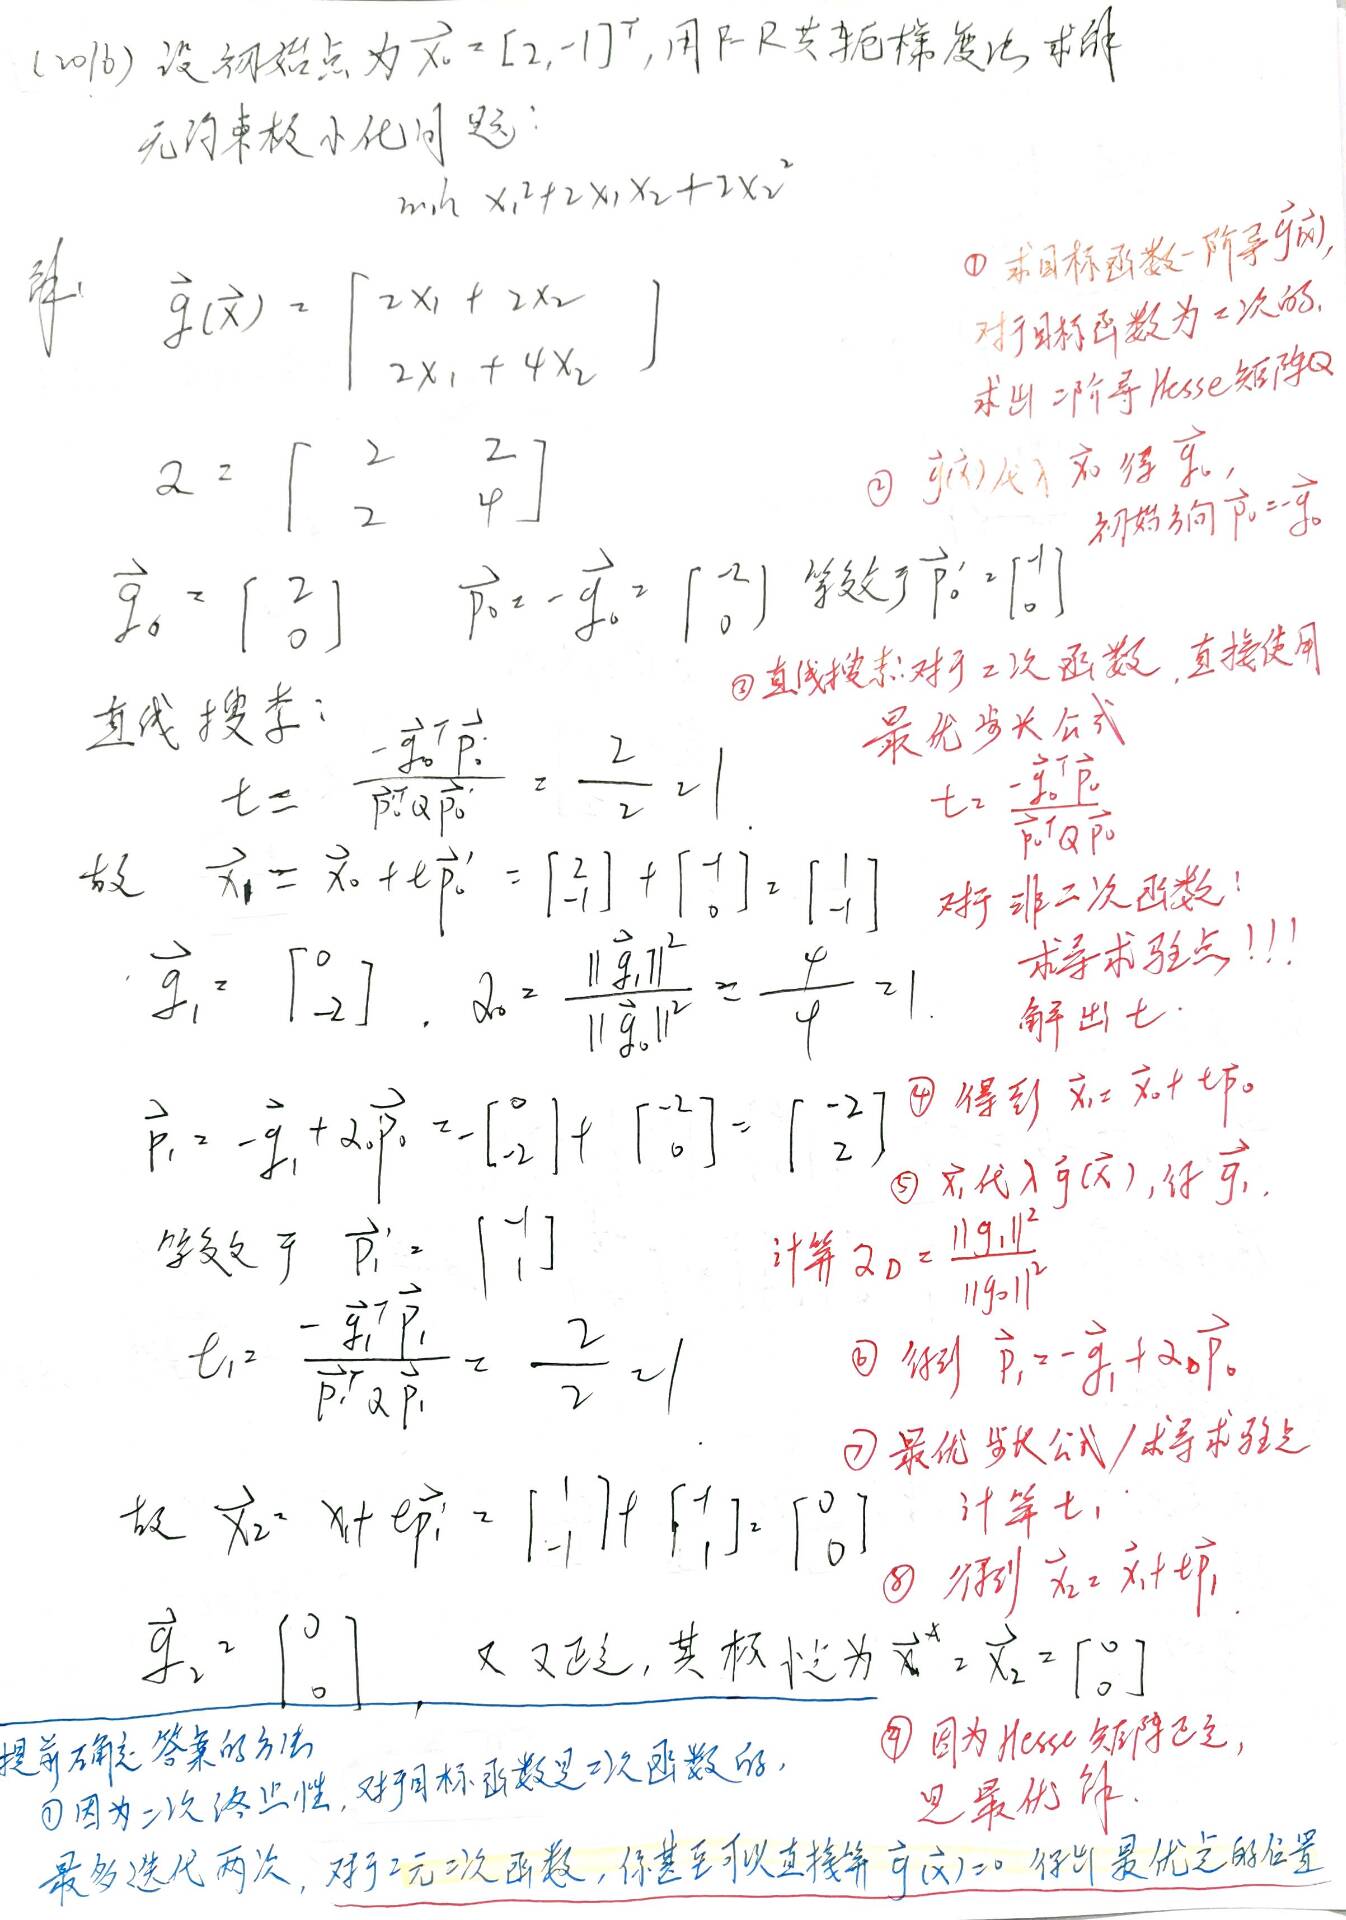 (2016) 设初始点为 x⃗₀ = [2,-1]ᵀ, 用F-R共轭梯度法求解
无约束极小化问题:
min x₁²+2x₁x₂+2x₂²
解: g⃗(x⃗) = [2x₁ + 2x₂
2x₁ + 4x₂]
Q = [2 2
2 4]
g⃗₀ = [2 0] p⃗₀ = -g⃗₀ = [-2 0] 等效于 p⃗₀' = [-1 0]
直线搜索:
t = -g⃗₀ᵀp⃗₀' / p⃗₀'ᵀQp⃗₀' = 2/2 = 1.
故 x⃗₁ = x⃗₀ + tp⃗₀' = [2 -1] + [-1 0] = [1 -1]
g⃗₁ = [0 -2]. α₀ = ||g⃗₁||²/||g⃗₀||² = 4/4 = 1.
p⃗₁ = -g⃗₁ + α₀p⃗₀ = -[0 -2] + [-2 0] = [-2 2]
等效于 p⃗₁' = [-1 1]
t₁ = -g⃗₁ᵀp⃗₁ / p⃗₁ᵀQp⃗₁ = 2/2 = 1.
故 x⃗₂ = x₁ + tp⃗₁' = [1 -1] + [-1 1] = [0 0]
g⃗₂ = [0 0], 又 正定, 其极 为 x⃗* = x⃗₂ = [0 0]
① 求目标函数一阶导g⃗(x⃗),
对于目标函数为二次的.
求出二阶导Hesse矩阵Q
② g⃗(x⃗)代入 x⃗₀ 得 g⃗₀,
初始方向 p⃗₀ = -g⃗₀
③ 直线搜索:对于二次函数,直接使用
最优步长公式
t = -g⃗₀ᵀp⃗₀ / p⃗₀ᵀQp⃗₀
对于非二次函数:
求导求驻点!!!
解出 t.
④ 得到 x⃗₁ = x⃗₀ + tp⃗₀
⑤ x⃗₁代入g⃗(x⃗), 得 g⃗₁.
计算 α₀ = ||g₁||²/||g₀||²
⑥ 得到 p⃗₁ = -g⃗₁ + α₀p⃗₀
⑦ 最优步长公式/求导求驻点
计算 t₁.
⑧ 得到 x⃗₂ = x⃗₁ + tp⃗₁.
⑨ 因为Hesse矩阵正定,
是最优解.
提前确定答案的方法
① 因为二次终止性,对于目标函数是二次函数的,
最多迭代两次, 对于二元二次函数, 你甚至可以直接算 g⃗(x⃗)=0 得出最优点的位置